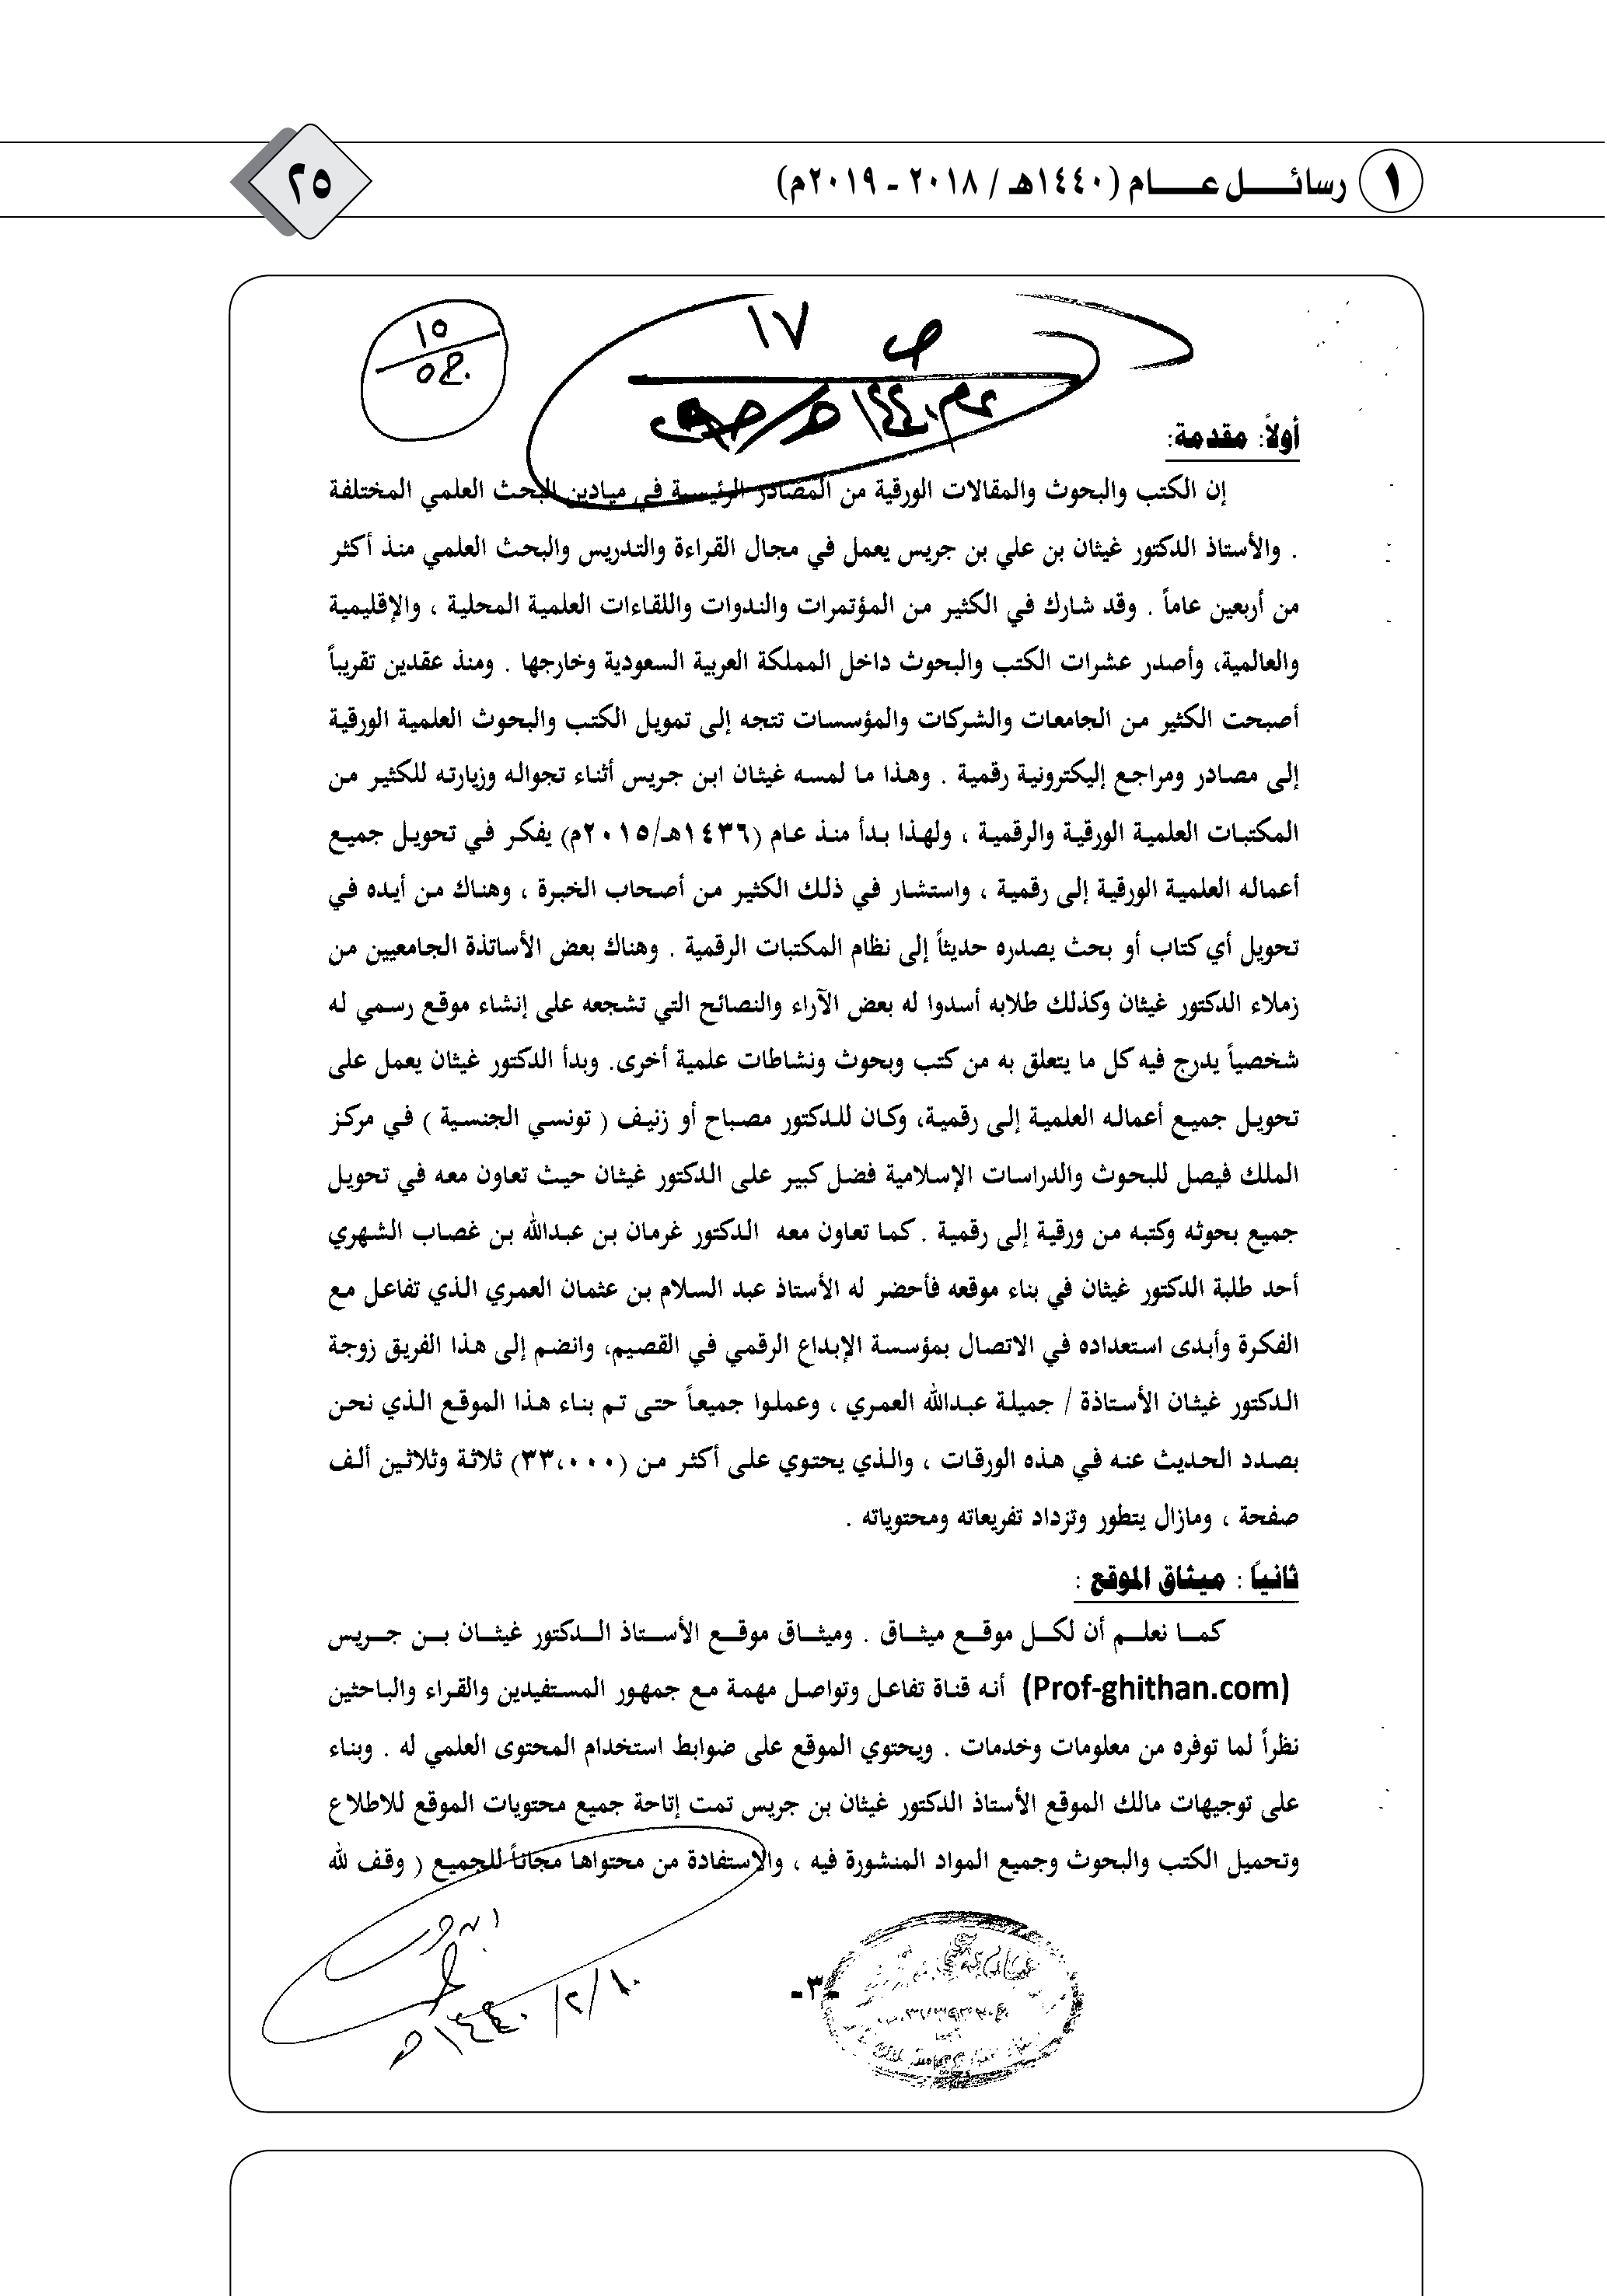 ١ رسائــــل عــــــام (١٤٤٠هـ / ٢٠١٨ - ٢٠١٩م)
٢٥
ص ١٧
عام ١٤٤٠هـ
١٥
٥٢٠
أولاً: مقدمة:
إن الكتب والبحوث والمقالات الورقية من المصادر الرئيسية في ميادين البحث العلمي المختلفة
. والأستاذ الدكتور غيثان بن علي بن جريس يعمل في مجال القراءة والتدريس والبحث العلمي منذ أكثر
من أربعين عاماً . وقد شارك في الكثير من المؤتمرات والندوات واللقاءات العلمية المحلية ، والإقليمية
والعالمية، وأصدر عشرات الكتب والبحوث داخل المملكة العربية السعودية وخارجها . ومنذ عقدين تقريباً
أصبحت الكثير من الجامعات والشركات والمؤسسات تتجه إلى تمويل الكتب والبحوث العلمية الورقية
إلى مصادر ومراجع إليكترونية رقمية . وهذا ما لمسه غيثان ابن جريس أثناء تجواله وزيارته للكثير من
المكتبات العلمية الورقية والرقمية ، ولهذا بدأ منذ عام (١٤٣٦هـ/٢٠١٥م) يفكر في تحويل جميع
أعماله العلمية الورقية إلى رقمية ، واستشار في ذلك الكثير من أصحاب الخبرة ، وهناك من أيده في
تحويل أي كتاب أو بحث يصدره حديثاً إلى نظام المكتبات الرقمية . وهناك بعض الأساتذة الجامعيين من
زملاء الدكتور غيثان وكذلك طلابه أسدوا له بعض الآراء والنصائح التي تشجعه على إنشاء موقع رسمي له
شخصياً يدرج فيه كل ما يتعلق به من كتب وبحوث ونشاطات علمية أخرى. وبدأ الدكتور غيثان يعمل على
تحويل جميع أعماله العلمية إلى رقمية، وكان للدكتور مصباح أو زنيف ( تونسي الجنسية ) في مركز
الملك فيصل للبحوث والدراسات الإسلامية فضل كبير على الدكتور غيثان حيث تعاون معه في تحويل
جميع بحوثه وكتبه من ورقية إلى رقمية . كما تعاون معه الدكتور غرمان بن عبدالله بن غصاب الشهري
أحد طلبة الدكتور غيثان في بناء موقعه فأحضر له الأستاذ عبد السلام بن عثمان العمري الذي تفاعل مع
الفكرة وأبدى استعداده في الاتصال بمؤسسة الإبداع الرقمي في القصيم، وانضم إلى هذا الفريق زوجة
الدكتور غيثان الأستاذة / جميلة عبدالله العمري ، وعملوا جميعاً حتى تم بناء هذا الموقع الذي نحن
بصدد الحديث عنه في هذه الورقات ، والذي يحتوي على أكثر من (٣٣،٠٠٠) ثلاثة وثلاثين ألف
صفحة ، ومازال يتطور وتزداد تفريعاته ومحتوياته .
ثانياً : ميثاق الموقع :
كمـا نعلـم أن لكـل موقـع ميثـاق . وميثـاق موقـع الأسـتاذ الـدكتور غيثـان بـن جـريس
(Prof-ghithan.com) أنه قناة تفاعل وتواصل مهمة مع جمهور المستفيدين والقراء والباحثين
نظراً لما توفره من معلومات وخدمات . ويحتوي الموقع على ضوابط استخدام المحتوى العلمي له . وبناء
على توجيهات مالك الموقع الأستاذ الدكتور غيثان بن جريس تمت إتاحة جميع محتويات الموقع للاطلاع
وتحميل الكتب والبحوث وجميع المواد المنشورة فيه ، والاستفادة من محتواها مجاناً للجميع ( وقف لله
-٣-
١٤٤٠/٢/١٠هـ